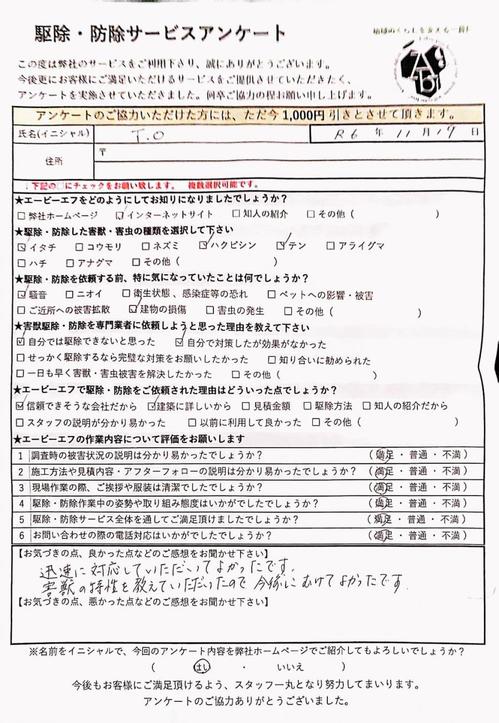 駆除・防除サービスアンケート
この度は弊社のサービスをご利用下さり、誠にありがとうございます。
今後更にお客様にご満足いただけるサービスをご提供させていただきたく、
アンケートを実施させていただきました。何卒ご協力の程お願い申し上げます。
アンケートのご協力いただけた方には、ただ今1,000円引きとさせて頂きます。
氏名(イニシャル) T.O R6 年 11 月 19 日
住所 〒
下記の□にチェックをお願い致します。 複数選択可能です。
★エービーエフをどのようにしてお知りになりましたでしょうか?
□弊社ホームページ ☑インターネットサイト □知人の紹介 □その他( )
★駆除・防除した害獣・害虫の種類を選択して下さい
☑イタチ □コウモリ □ネズミ ☑ハクビシン ☑テン □アライグマ
□ハチ □アナグマ □その他( )
★駆除・防除を依頼する前、特に気になっていたことは何でしょうか?
☑騒音 □ニオイ □衛生状態、感染症等の恐れ □ペットへの影響・被害
□ご近所への被害拡散 ☑建物の損傷 □害虫の発生 □その他( )
★害獣駆除・防除を専門業者に依頼しようと思った理由を教えて下さい
☑自分では駆除できないと思った ☑自分で対策したが効果がなかった
□せっかく駆除するなら完璧な対策をお願いしたかった □知り合いに勧められた
□一日も早く害獣・害虫被害を解決したかった □その他( )
★エービーエフで駆除・防除をご依頼された理由はどういった点でしょうか?
☑信頼できそうな会社だから ☑建築に詳しいから □見積金額 □駆除方法 □知人の紹介だから
□スタッフの説明が分かり易かった □以前に利用して良かった □その他( )
★エービーエフの作業内容について評価をお願いします
1 調査時の被害状況の説明は分かり易かったでしょうか? (満足・普通・不満)
2 施工方法や見積内容・アフターフォローの説明は分かり易かったでしょうか? (満足・普通・不満)
3 現場作業の際、ご挨拶や服装は清潔でしたでしょうか? (満足・普通・不満)
4 駆除・防除作業中の姿勢や取り組み態度はいかがでしたでしょうか? (満足・普通・不満)
5 駆除・防除サービス全体を通してご満足頂けましたでしょうか? (満足・普通・不満)
6 お問い合わせの際の電話対応はいかがでしたでしょうか? (満足・普通・不満)
【お気づきの点、良かった点などのご感想をお聞かせ下さい】
迅速に対応していただいてよかったです。
害獣の特性を教えていただいたので今後にむけてよかったです
【お気づきの点、悪かった点などのご感想をお聞かせ下さい】
※名前をイニシャルで、今回のアンケート内容を弊社ホームページでご紹介してもよろしいでしょうか?
( はい ・ いいえ )
今後もお客様にご満足頂けるよう、スタッフ一丸となり努力してまいります。
アンケートのご協力ありがとうございました。